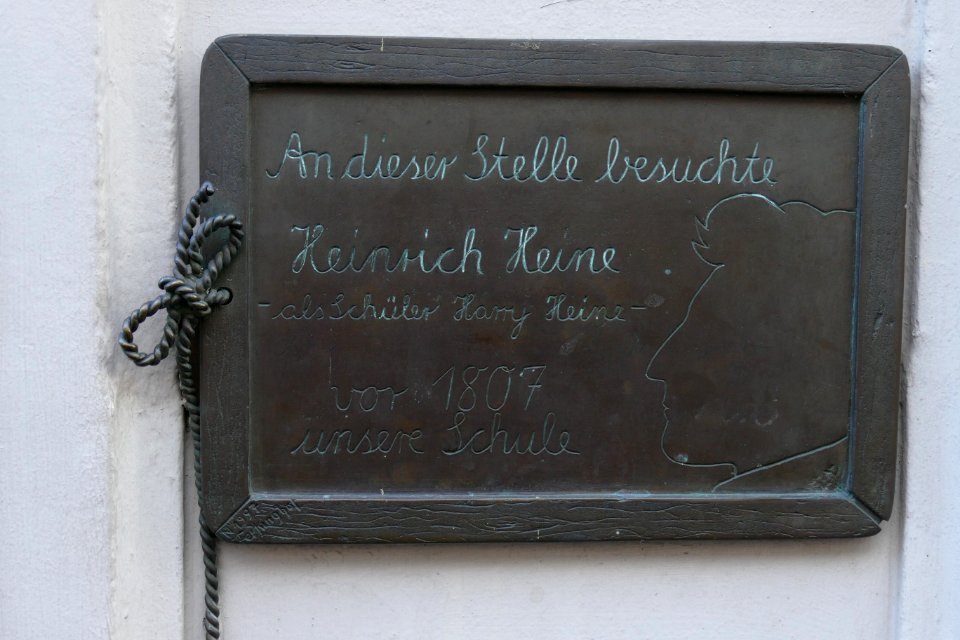 An dieser Stelle besuchte
Heinrich Heine
- als Schüler Harry Heine -
vor 1807
unsere Schule